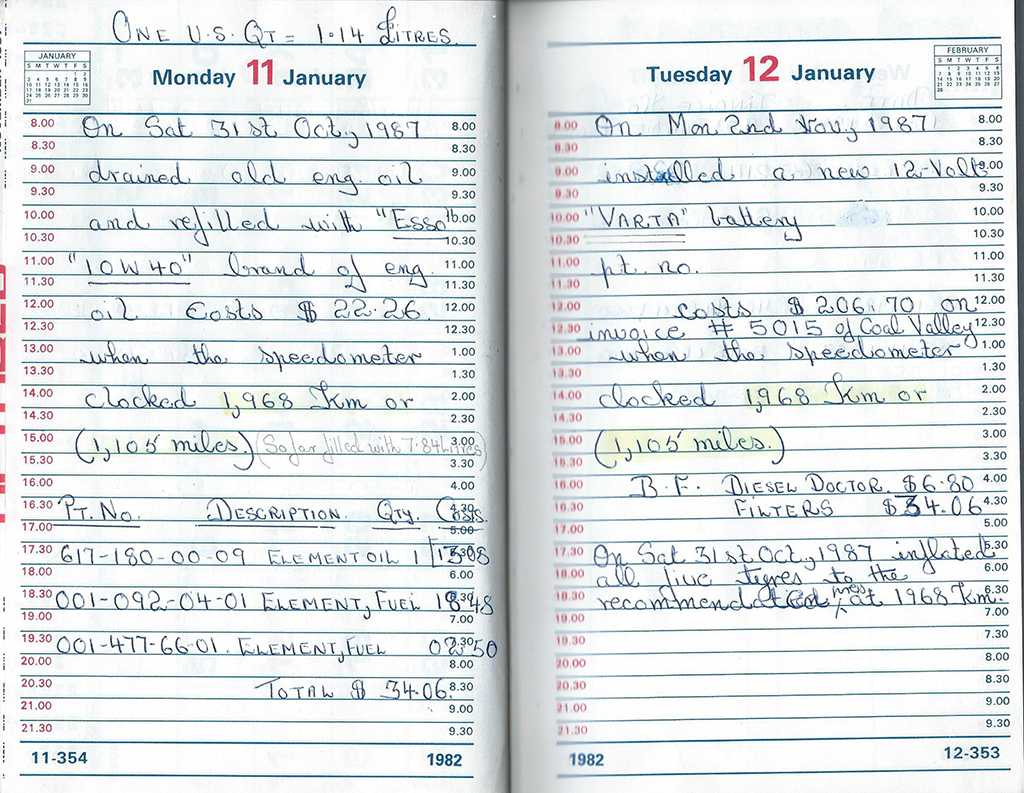 ONE U.S. QT = 1.14 LITRES.
JANUARY
S M T W T F S
Monday 11 January
8.00 On Sat 31st Oct, 1987 8.00
8.30 8.30
9.00 drained old eng. oil 9.00
9.30 9.30
10.00 and refilled with "Esso" 10.00
10.30 10.30
11.00 "10W40" brand of eng. 11.00
11.30 11.30
12.00 oil Costs $ 22.26. 12.00
12.30 12.30
13.00 when the speedometer 1.00
13.30 1.30
14.00 clocked 1,968 Km or 2.00
14.30 2.30
15.00 (1,105 miles.) (So far filled with 7.84 Litres) 3.00
15.30 3.30
16.00 4.00
16.30 PT. NO. DESCRIPTION. QTY. COSTS. 4.30
17.00 5.00
17.30 617-180-00-09 ELEMENT OIL 1 13.08 5.30
18.00 6.00
18.30 001-092-04-01 ELEMENT, FUEL 18.48 6.30
19.00 7.00
19.30 001-477-66-01. ELEMENT, FUEL 02.50 7.30
20.00 8.00
20.30 TOTAL $ 34.06. 8.30
21.00 9.00
21.30 9.30
11-354 1982
FEBRUARY
S M T W T F S
Tuesday 12 January
8.00 On Mon 2nd Nov, 1987 8.00
8.30 8.30
9.00 installed a new 12-Volts 9.00
9.30 9.30
10.00 "VARTA" battery 10.00
10.30 10.30
11.00 pt. no. 11.00
11.30 11.30
12.00 costs $ 206.70 on 12.00
12.30 invoice # 5015 of Coal Valley 12.30
13.00 when the speedometer 1.00
13.30 1.30
14.00 clocked 1,968 Km or 2.00
14.30 2.30
15.00 (1,105 miles.) 3.00
15.30 3.30
16.00 B.F. DIESEL DOCTOR. $6.80 4.00
16.30 FILTERS $34.06 4.30
17.00 5.00
17.30 On Sat 31st Oct, 1987 inflated 5.30
18.00 all five tyres to the 6.00
18.30 recommendated press at 1968 Km. 6.30
19.00 7.00
19.30 7.30
20.00 8.00
20.30 8.30
21.00 9.00
21.30 9.30
1982 12-353